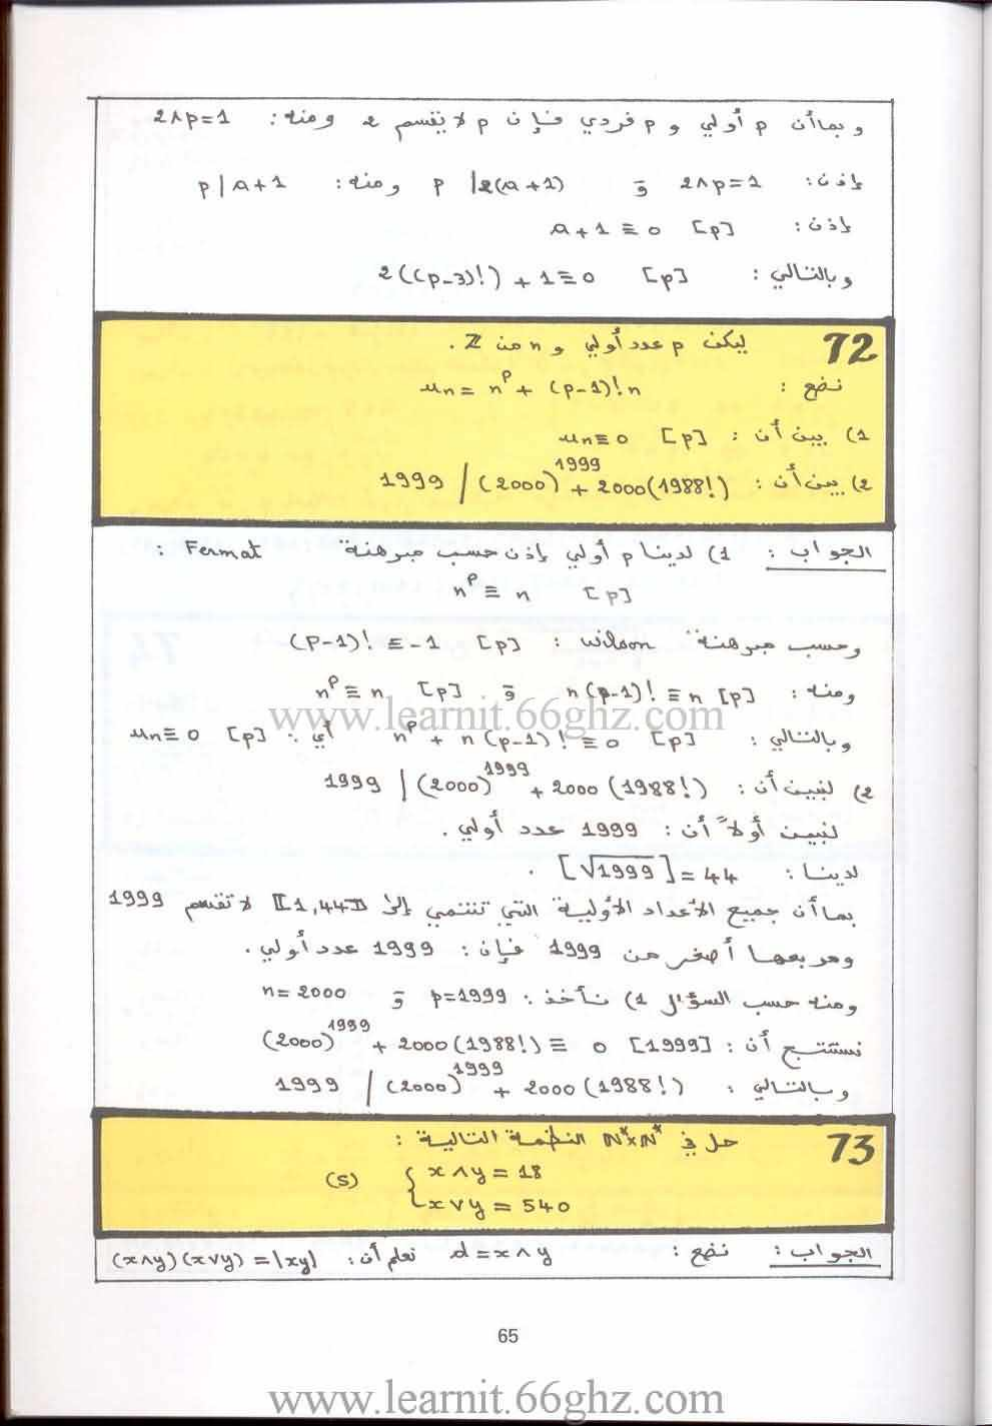 و بما أن p أولي و p فردي فإن p لا يقسم 2 ومنه : 2∧p=1
إذن : 2∧p=1 و p | 2(a+1) ومنه : p | a+1
إذن : a+1 ≡ 0 [p]
وبالتالي : 2((p-3)!) + 1 ≡ 0 [p]
72 ليكن p عدد أولي و n من Z .
نضع : un = n^p + (p-1)! n
1) بين أن : un ≡ 0 [p]
2) بين أن : 1999 | (2000)^1999 + 2000(1988!)
الجواب : 1) لدينا p أولي إذن حسب مبرهنة Fermat :
n^p ≡ n [p]
وحسب مبرهنة wilson : (p-1)! ≡ -1 [p]
ومنه : n(p-1)! ≡ n [p] و n^p ≡ n [p]
وبالتالي : n^p + n(p-1)! ≡ 0 [p] أي : un ≡ 0 [p]
2) لنبين أن : 1999 | (2000)^1999 + 2000(1988!)
لنبين أولا أن : 1999 عدد أولي .
لدينا : [√1999] = 44 .
بما أن جميع الأعداد الأولية التي تنتمي إلى ⟦1,44⟧ لا تقسم 1999
ومربعها أصغر من 1999 فإن : 1999 عدد أولي .
ومنه حسب السؤال 1) نأخذ : p=1999 و n=2000
نستنتج أن : (2000)^1999 + 2000(1988!) ≡ 0 [1999]
وبالتالي : 1999 | (2000)^1999 + 2000(1988!)
73 حل في N*×N* النظمة التالية :
(S) { x∧y = 18
x∨y = 540
الجواب : نضع : d = x∧y نعلم أن : (x∧y)(x∨y) = |xy|
65
www.learnit.66ghz.com
www.learnit.66ghz.com